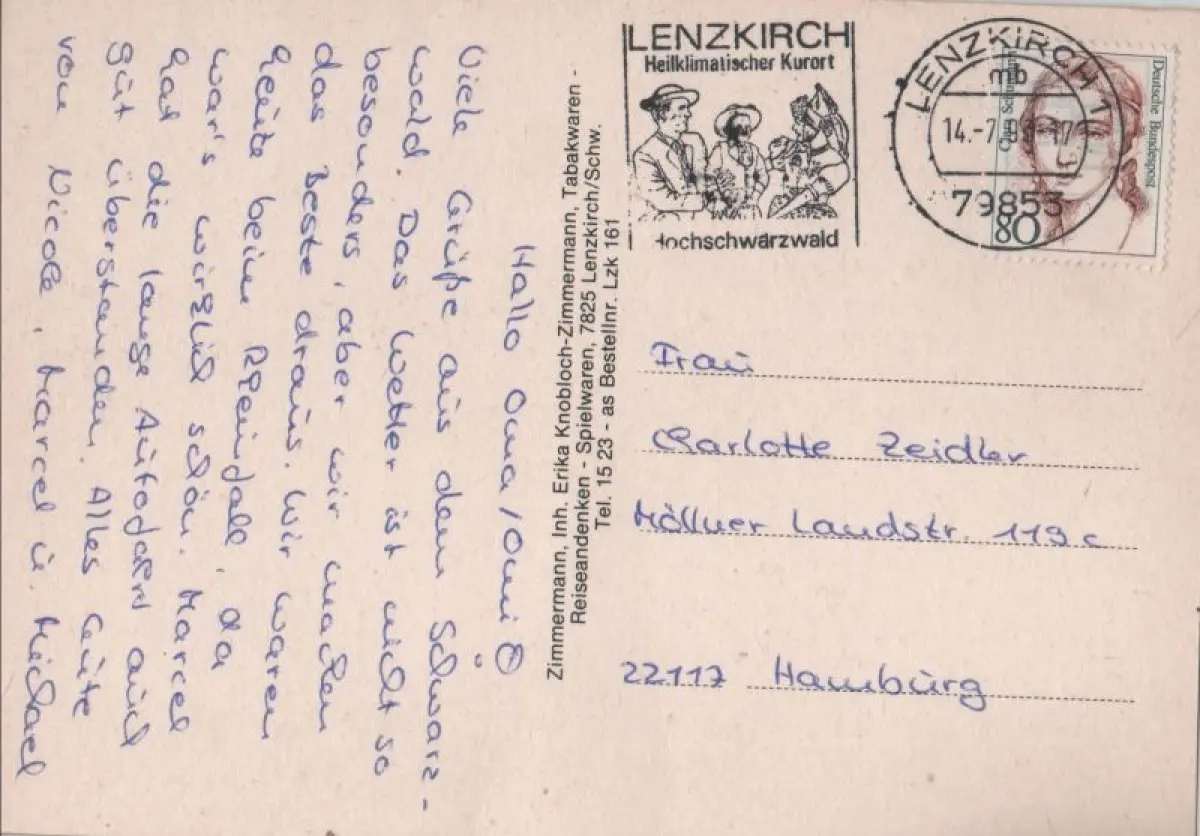 Hallo Oma/Omi
Viele Grüße aus dem Schwarz-
wald. Das Wetter ist nicht so
besonders, aber wir machen
das Beste draus. Wir waren
heute beim Rheinfall, da
war's wirklich schön. Marcel
hat die lange Autofahrt auch
gut überstanden. Alles Gute
von Nicole, Marcel u. Michael
Zimmermann, Inh. Erika Knobloch-Zimmermann, Tabakwaren -
Reiseandenken - Spielwaren, 7825 Lenzkirch/Schw.
Tel. 15 23 - as Bestellnr. Lzk 161
LENZKIRCH
Heilklimatischer Kurort
Hochschwarzwald
LENZKIRCH 1
mb
14.-7.
79853
Deutsche Bundespost
80
Frau
Charlotte Zeidler
Möllner Landstr. 119 c
22117 Hamburg